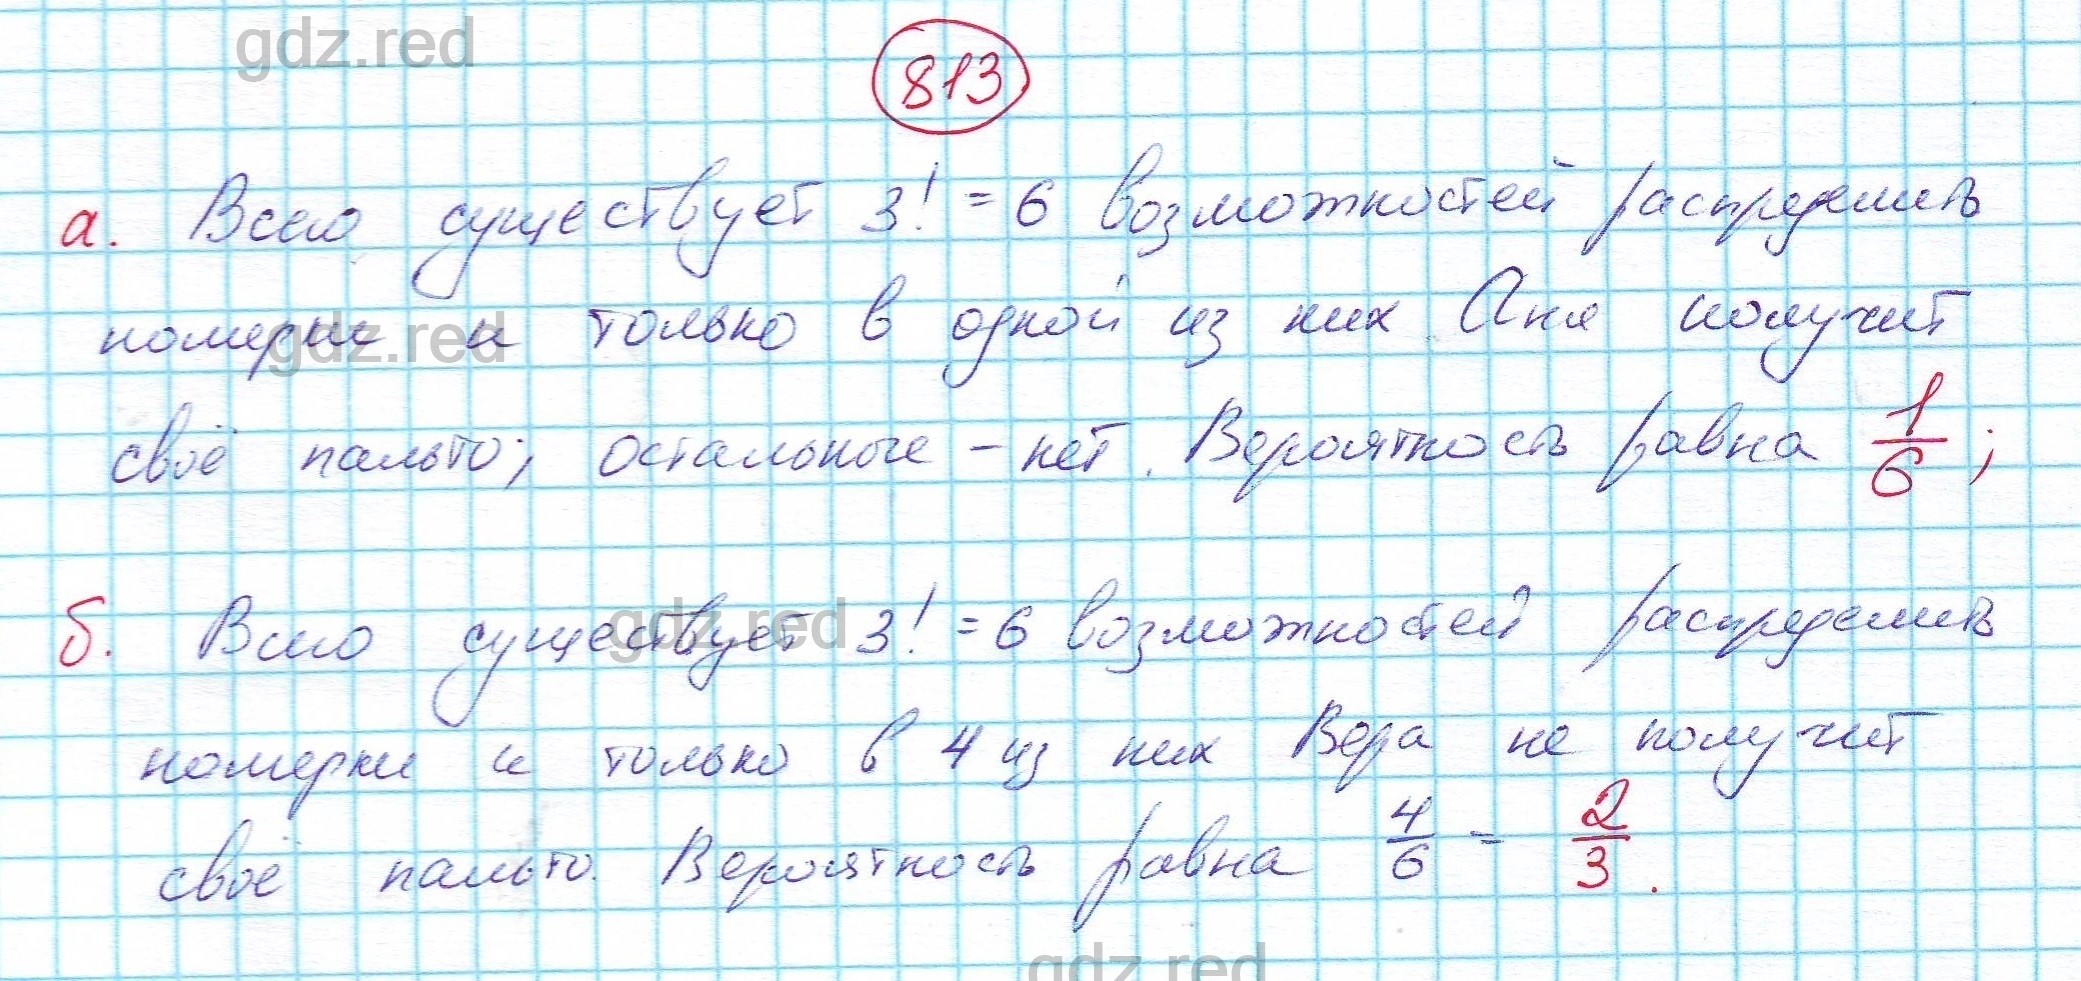 gdz.red
813
а. Всего существует 3! = 6 возможностей распределить
номерки и только в одной из них Аня получит
gdz.red
своё пальто; остальные - нет. Вероятность равна 1/6;
б. Всего существует 3! = 6 возможностей распределить
gdz.red
номерки и только в 4 из них Вера не получит
своё пальто. Вероятность равна 4/6 = 2/3.
gdz.red